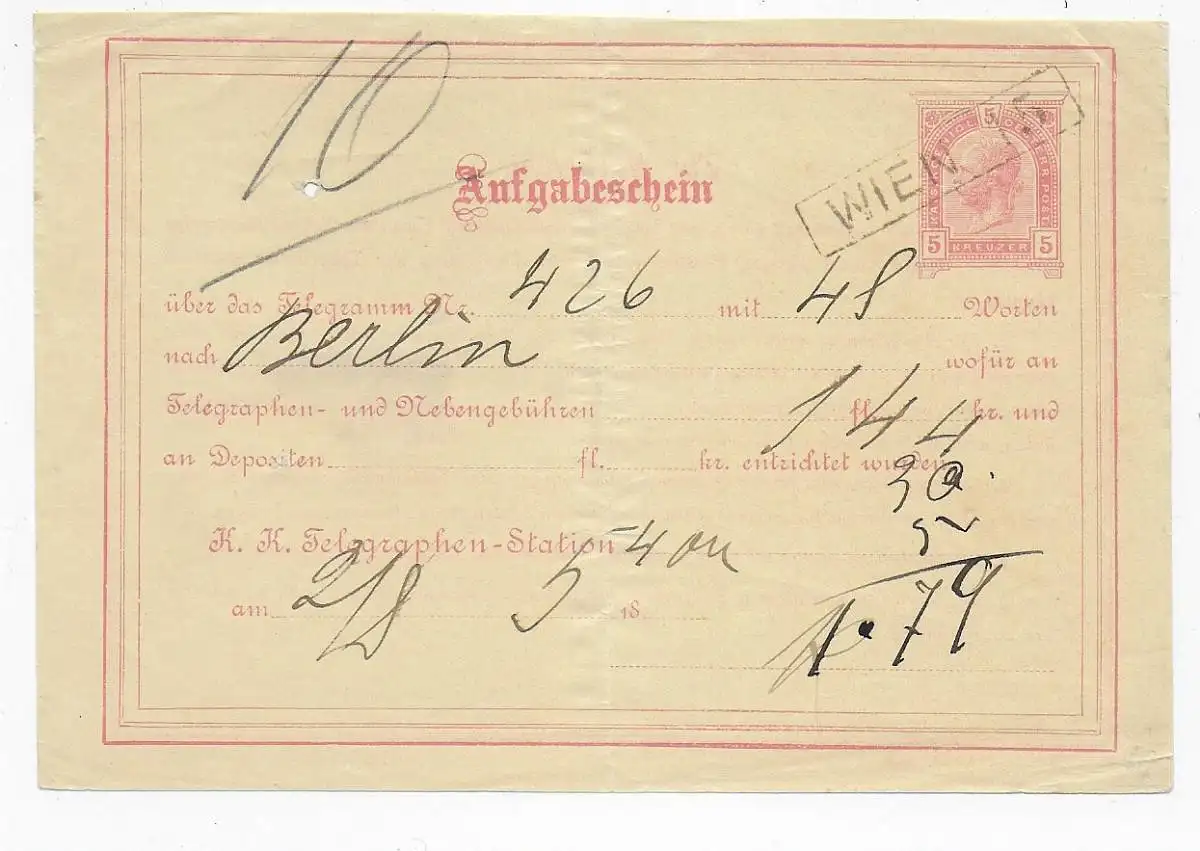 10
5
KAIS. KÖNIGL. OESTERR. POST
5 KREUZER 5
WIEN
Aufgabeschein
über das Telegramm Nr. 426 mit 48 Worten
nach Berlin wofür an
Telegraphen- und Nebengebühren 1 fl. 44 kr. und
an Depositen fl. kr. entrichtet wurden.
30
5
K. K. Telegraphen-Station
am 2/8 5 40 18
1.79